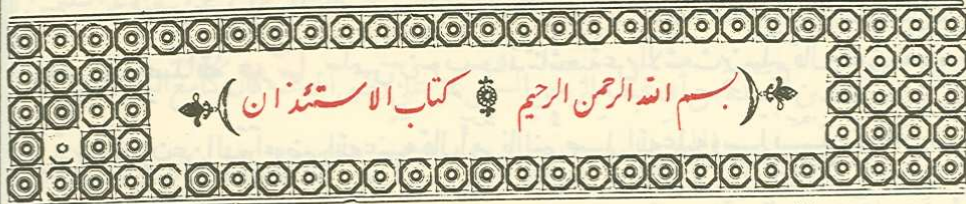 بسم الله الرحمن الرحيم كتاب الاستئذان